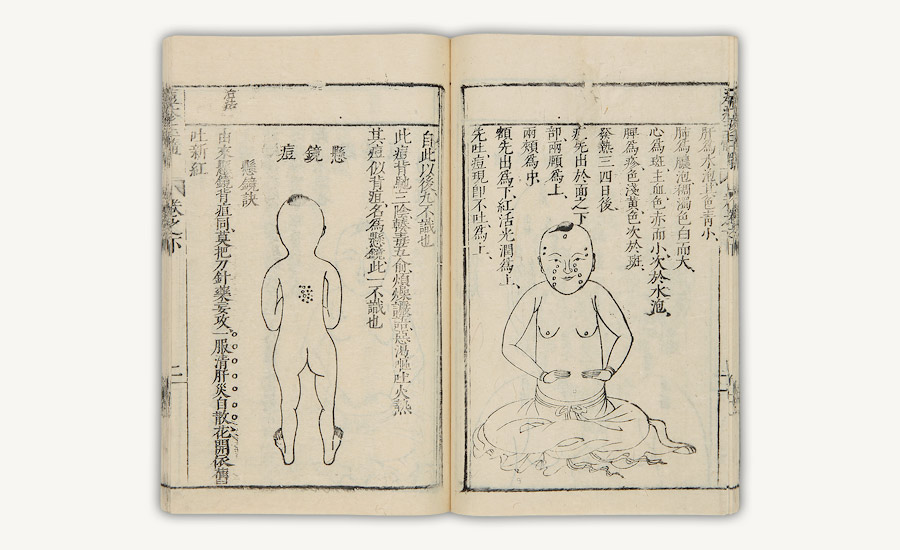 肝為水泡其色青小、
肺為膿泡稠濁色白而大、
心為斑主血色赤而小次於水泡、
脾為疹色淺黃色次於斑、
發熱三四日後、
痘先出於面之下
部兩頤為上、
兩頰為中、
額先出為下紅活光潤為上、
先吐痘現即不吐為上、
自此以後九不識也
此痘背馳三陰熱毒五俞煩燥譫語惡渴嘔吐火熱
其痘似背疽名為懸鏡此一不識也
懸鏡痘
懸鏡訣
由來懸鏡背疽同莫把刀針藥妄攻一服清肝災自散花開依舊
吐新紅
卷之下
二